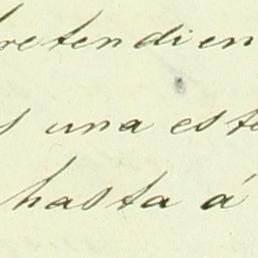 pretendien
s una este
hasta á